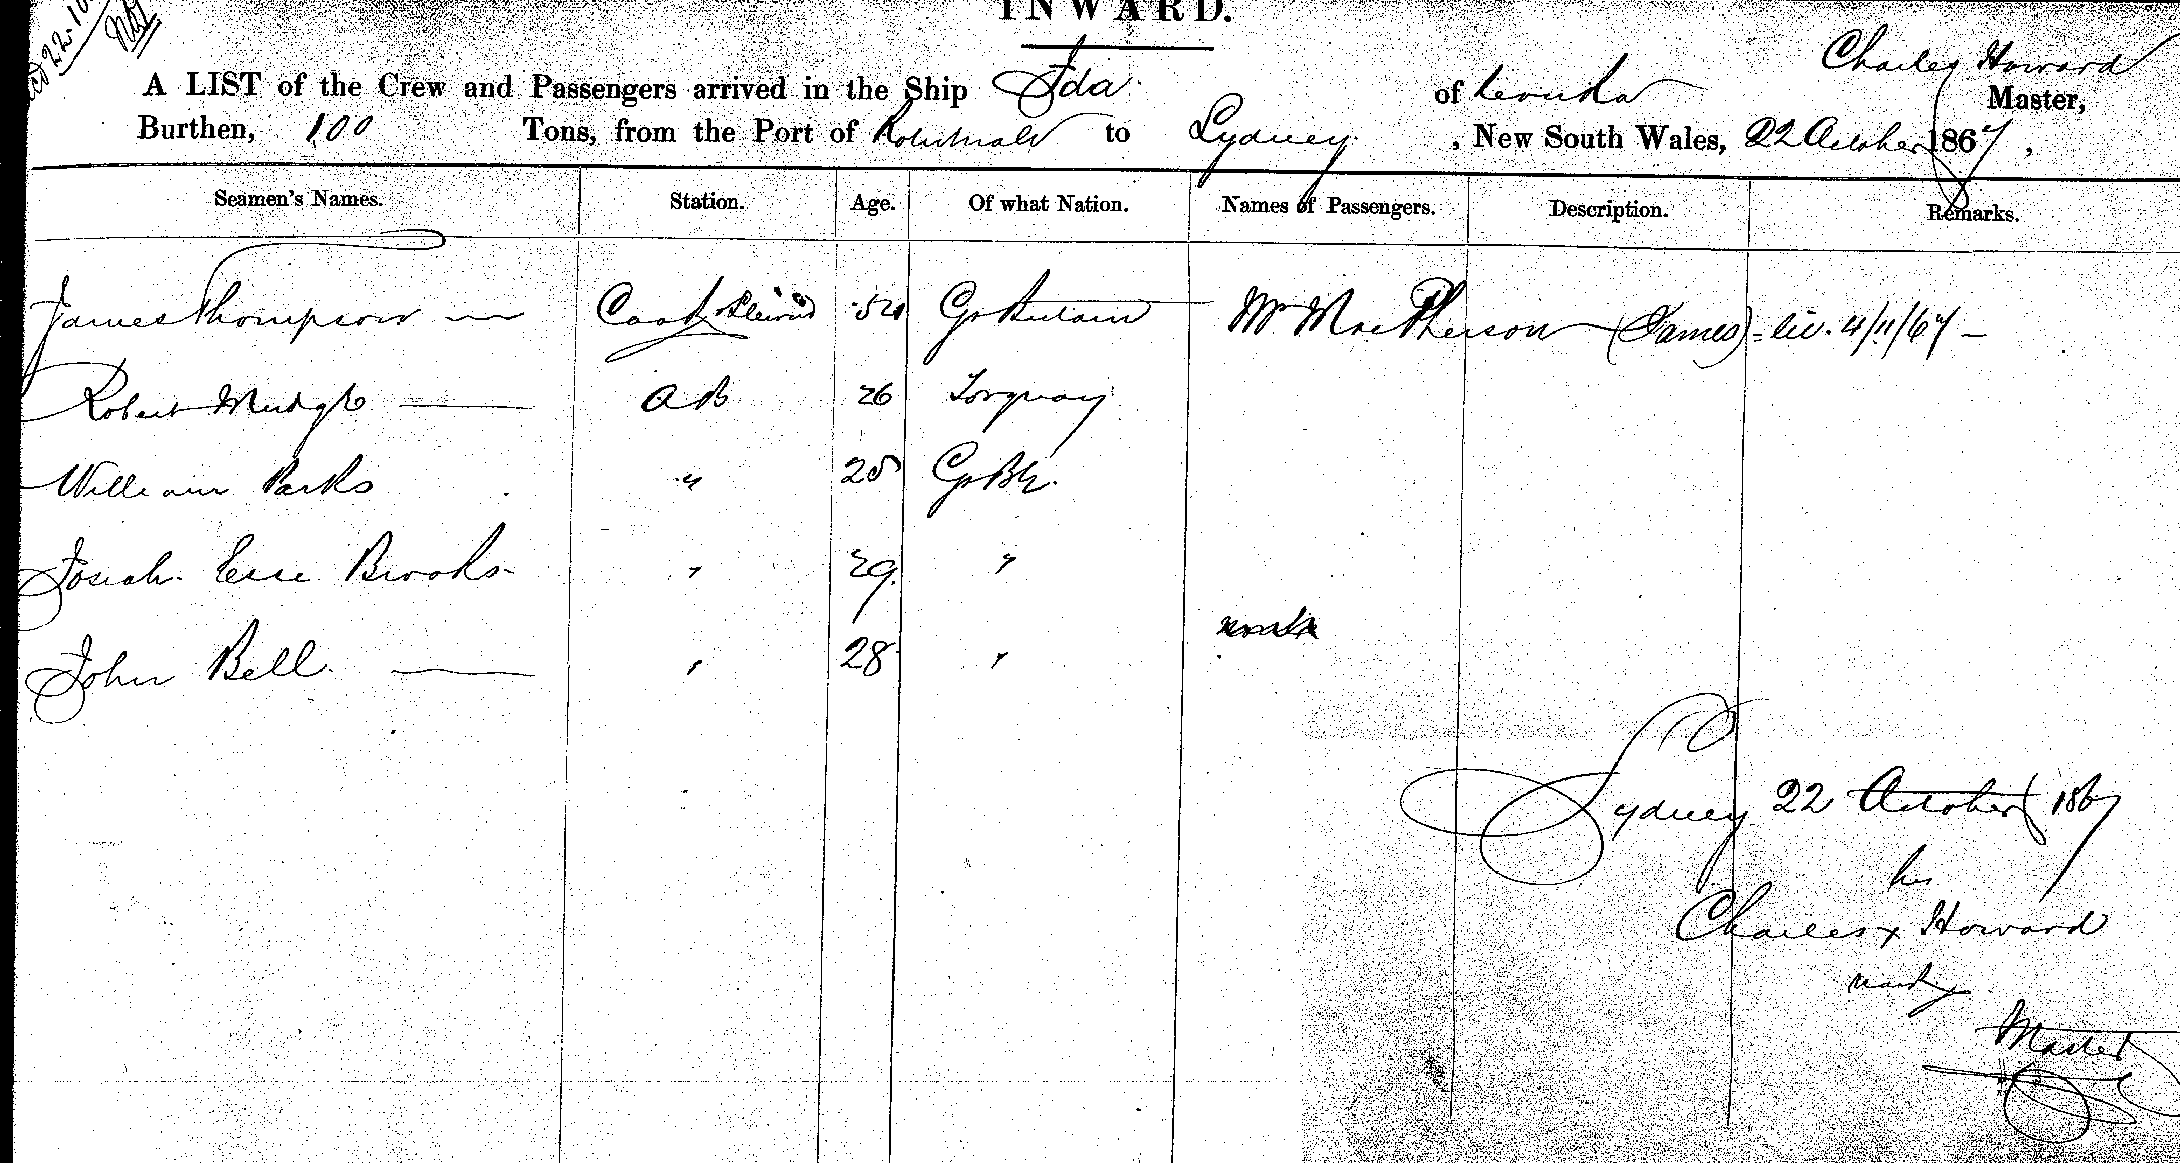 INWARD.
A LIST of the Crew and Passengers arrived in the Ship Ida of Levuka Charles Howard Master,
Burthen, 100 Tons, from the Port of to Sydney , New South Wales, 22 October 1867 ,
Seamen's Names. Station. Age. Of what Nation. Names of Passengers. Description. Remarks.
James Thompson Cook & Steward 52 Gr Britain Mr MacPherson (James) - 4/11/67 -
Robert Mudge AB 26 Torquay
William Parks " 25 Gr Br.
Josiah Brooks " 29 "
John Bell " 28 "
Sydney 22 October 1867
his
Charles x Howard
mark
Master